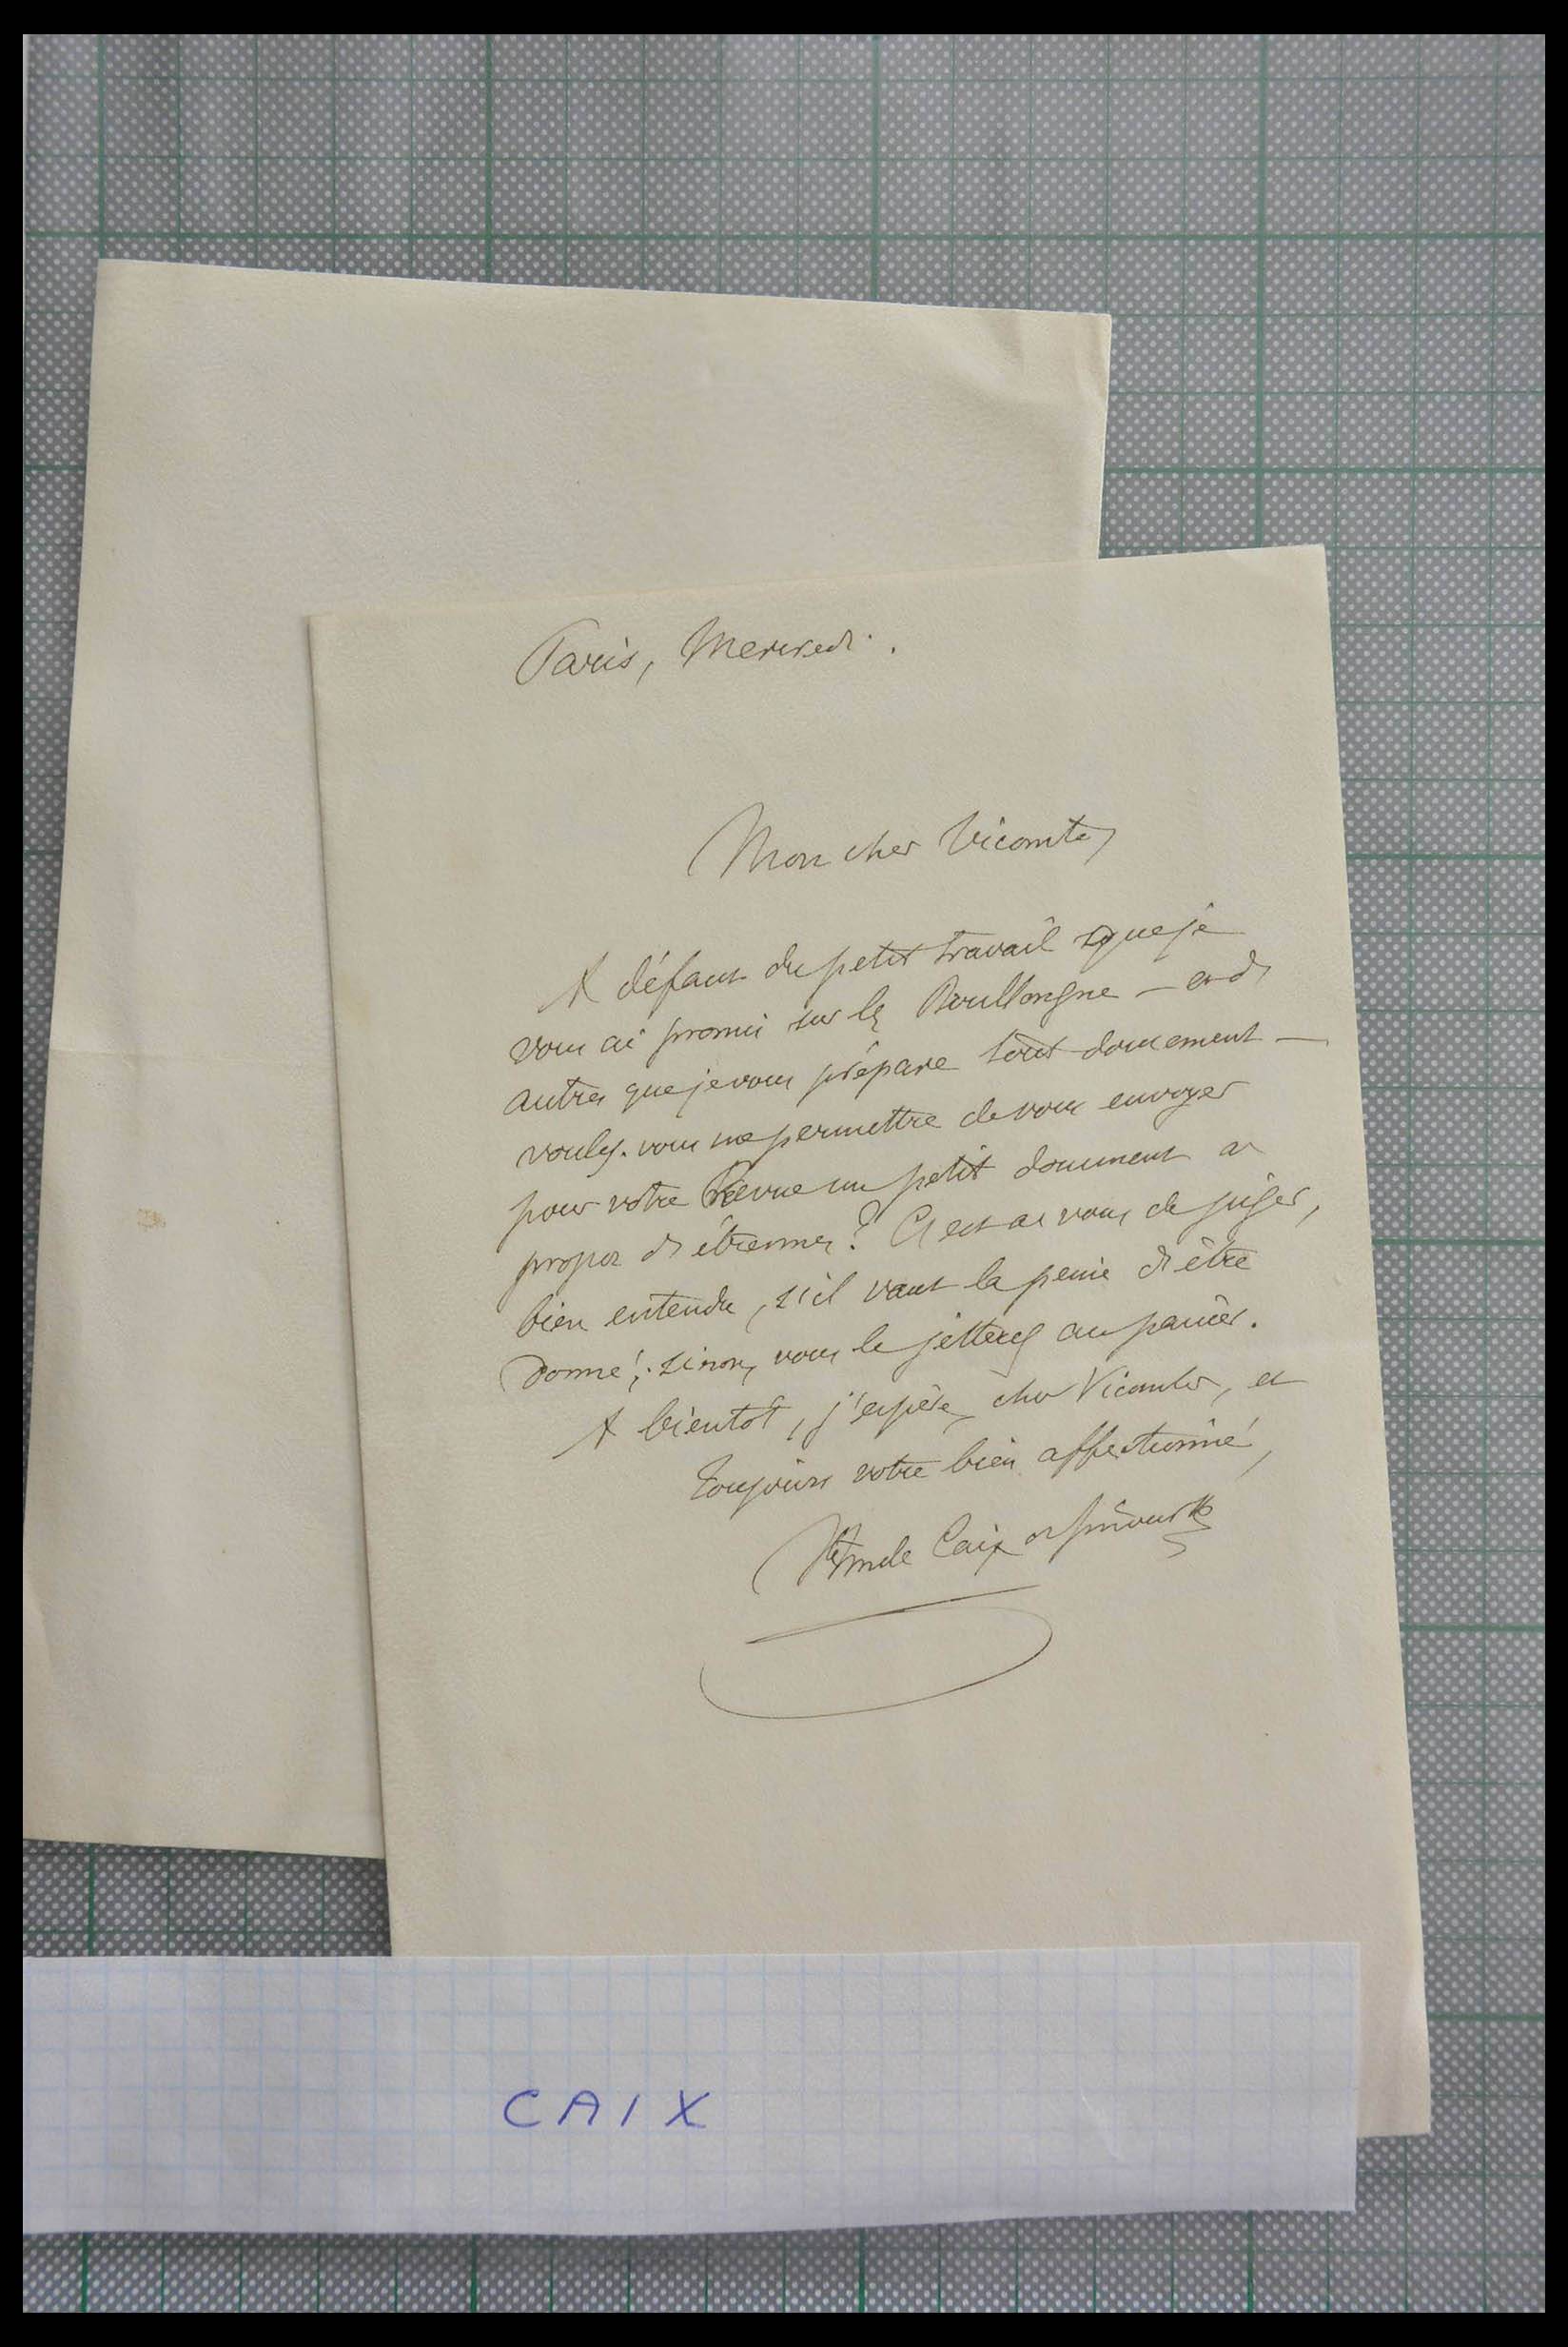 Paris, Mercredi.
Mon cher Vicomte,
A défaut du petit travail que je
vous ai promis sur les Boullongne — et d'
autres que je vous prépare tout doucement —
voulez-vous me permettre de vous envoyer
pour votre Revue un petit document à
propos d'étrennes? C'est à vous de juger,
bien entendu, s'il vaut la peine d'être
donné; sinon, vous le jetterez au panier.
A bientôt, j'espère, cher Vicomte, et
toujours votre bien affectionné,
Caix de
CAIX